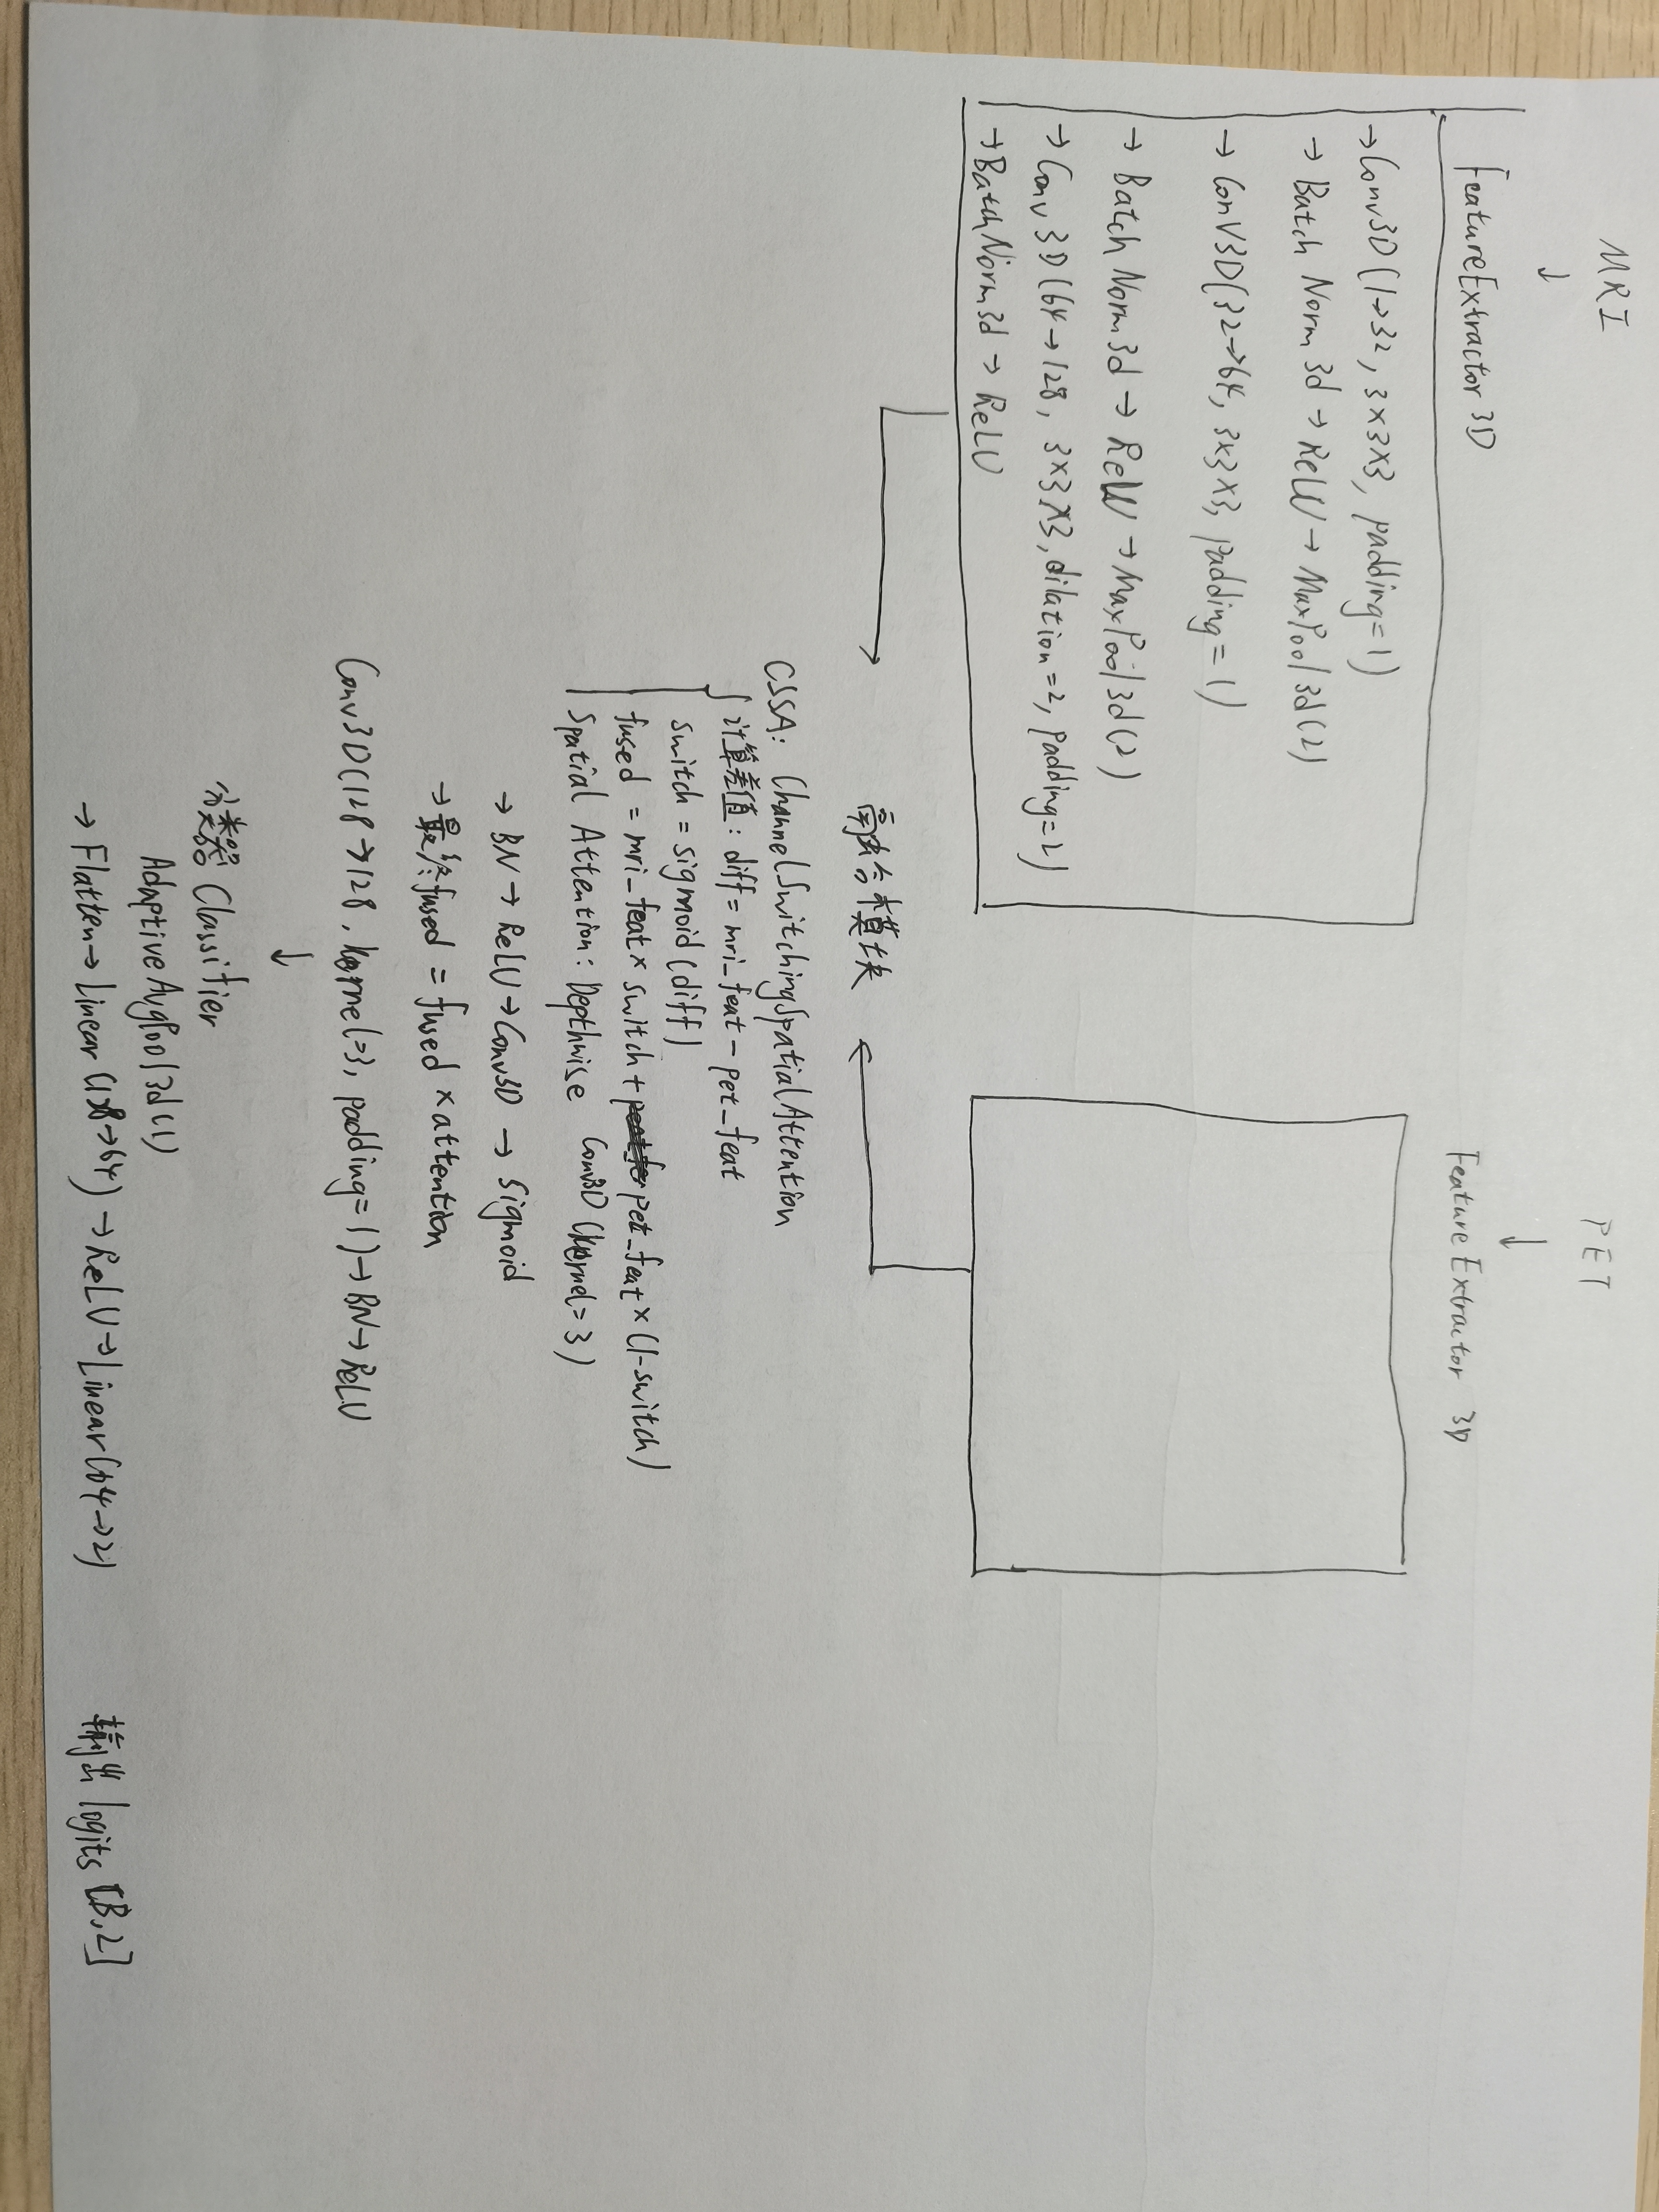 MRI
↓
FeatureExtractor 3D
→Conv3D(1→32, 3×3×3, padding=1)
→ Batch Norm3d → ReLU → MaxPool3d(2)
→ ConV3D(32→64, 3×3×3, padding=1)
→ Batch Norm3d → ReLU → MaxPool3d(2)
→ Conv3D(64→128, 3×3×3, dilation=2, padding=2)
→BatchNorm3d → ReLU
PET
↓
Feature Extractor 3D
融合模块
CSSA: ChannelSwitchingSpatialAttention
计算差值: diff= mri_feat - pet_feat
switch = sigmoid(diff)
fused = mri_feat × switch + pet_feat × (1-switch)
Spatial Attention: Depthwise Conv3D (kernel=3)
→ BN → ReLU → Conv3D → Sigmoid
→最终fused = fused × attention
Conv3D(128→128, kernel=3, padding=1)→BN→ReLU
↓
分类器 Classifier
AdaptiveAvgPool3d(1)
→ Flatten→ Linear(128→64) →ReLU→Linear(64→2) 输出 logits [B,2]